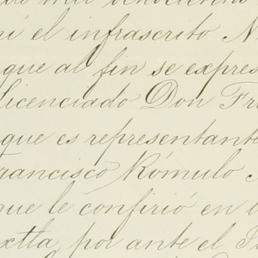 el infrascrito N
que al fin se expres
licenciado Don Fr
que es representant
Francisco Rómulo
que le confirió en
por ante el